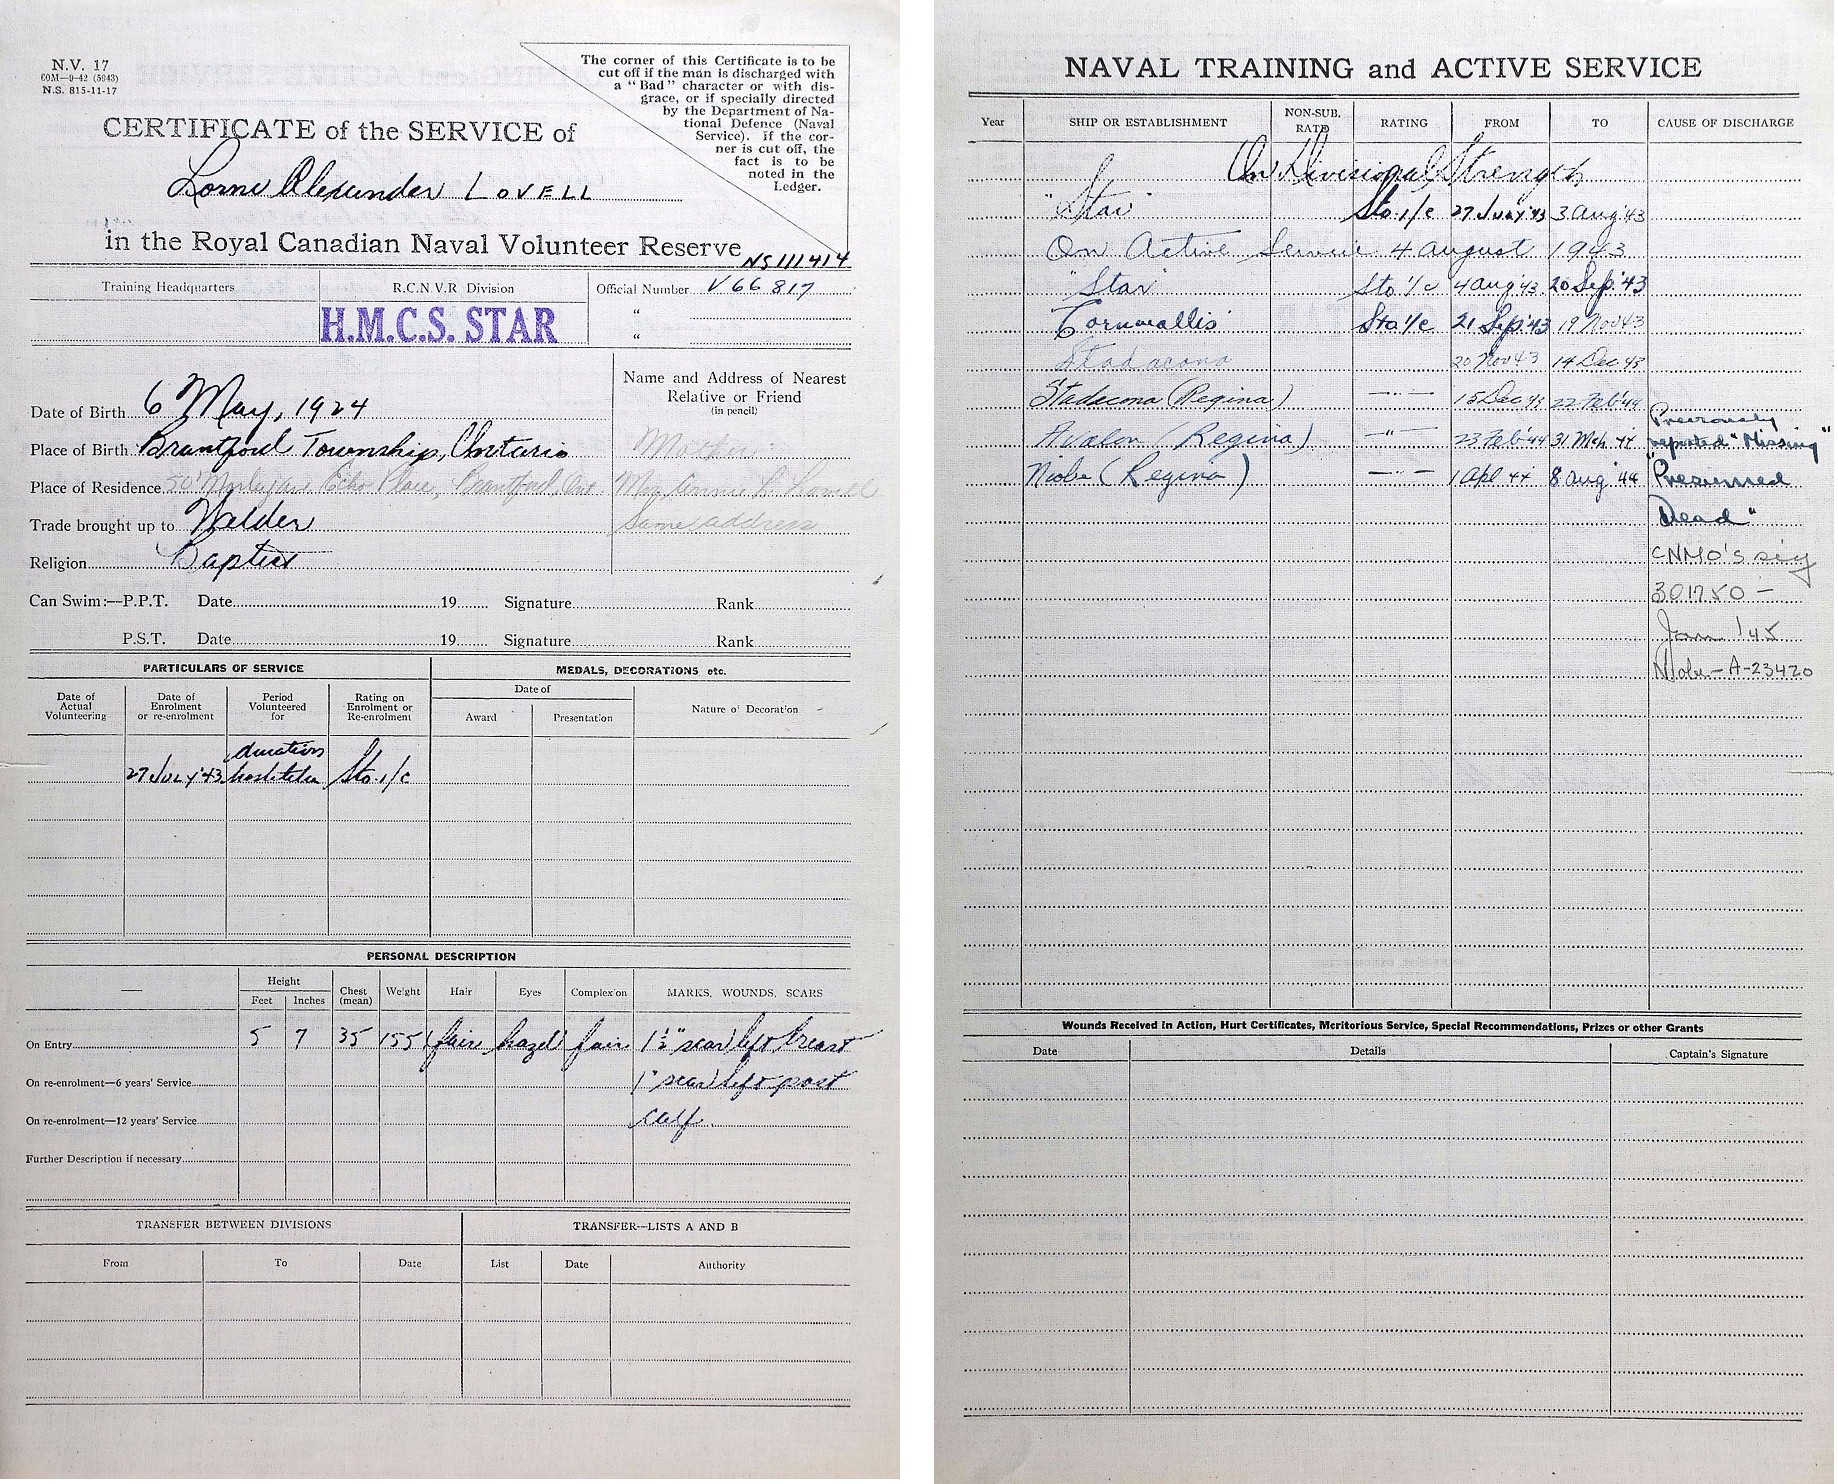 N.V. 17
60M—9-42 (5943)
N.S. 815-11-17
The corner of this Certificate is to be
cut off if the man is discharged with
a "Bad" character or with dis-
grace, or if specially directed
by the Department of Na-
tional Defence (Naval
Service). If the cor-
ner is cut off, the
fact is to be
noted in the
Ledger.
CERTIFICATE of the SERVICE of
Lorne Alexander LOVELL
in the Royal Canadian Naval Volunteer Reserve
NS 111414
Training Headquarters R.C.N.V.R Division Official Number V 66 817
H.M.C.S. STAR
"
"
Name and Address of Nearest
Relative or Friend
(in pencil)
Date of Birth 6 May, 1924
Place of Birth Brantford Township, Ontario Mother
Place of Residence Echo Place, Brantford, Ont Mrs Annie Lovell
Trade brought up to Welder Same address
Religion Baptist
Can Swim:—P.P.T. Date 19 Signature Rank
P.S.T. Date 19 Signature Rank
PARTICULARS OF SERVICE MEDALS, DECORATIONS etc.
Date of Actual Volunteering Date of Enrolment or re-enrolment Period Volunteered for Rating on Enrolment or Re-enrolment Date of Award Presentation Nature of Decoration
duration
27 JULY '43 hostilities Sto. 1/c
PERSONAL DESCRIPTION
Height Feet Inches Chest (mean) Weight Hair Eyes Complexion MARKS, WOUNDS, SCARS
On Entry 5 7 35 155 fair hazel fair 1½" scar left breast
On re-enrolment—6 years' Service 1" scar left post
On re-enrolment—12 years' Service calf
Further Description if necessary
TRANSFER BETWEEN DIVISIONS TRANSFER—LISTS A AND B
From To Date List Date Authority
NAVAL TRAINING and ACTIVE SERVICE
Year SHIP OR ESTABLISHMENT NON-SUB. RATE RATING FROM TO CAUSE OF DISCHARGE
On Divisional Strength
"Star" Sto. 1/c 27 July '43 3 Aug '43
On Active Service 4 August 1943
"Star" Sto 1/c 4 Aug '43 20 Sep. '43
Cornwallis Sto 1/c 21 Sep '43 19 Nov 43
Stadacona 20 Nov 43 14 Dec 43
Stadacona (Regina) —"— 15 Dec 43 22 Feb '44
Avalon (Regina) —"— 23 Feb '44 31 Mch '44
Niobe (Regina) —"— 1 Apl 44 8 Aug '44
Previously
reported "Missing"
"Presumed
Dead"
CNMO's sig
301750—
Jan '45
Niobe—A-23420
Wounds Received in Action, Hurt Certificates, Meritorious Service, Special Recommendations, Prizes or other Grants
Date Details Captain's Signature